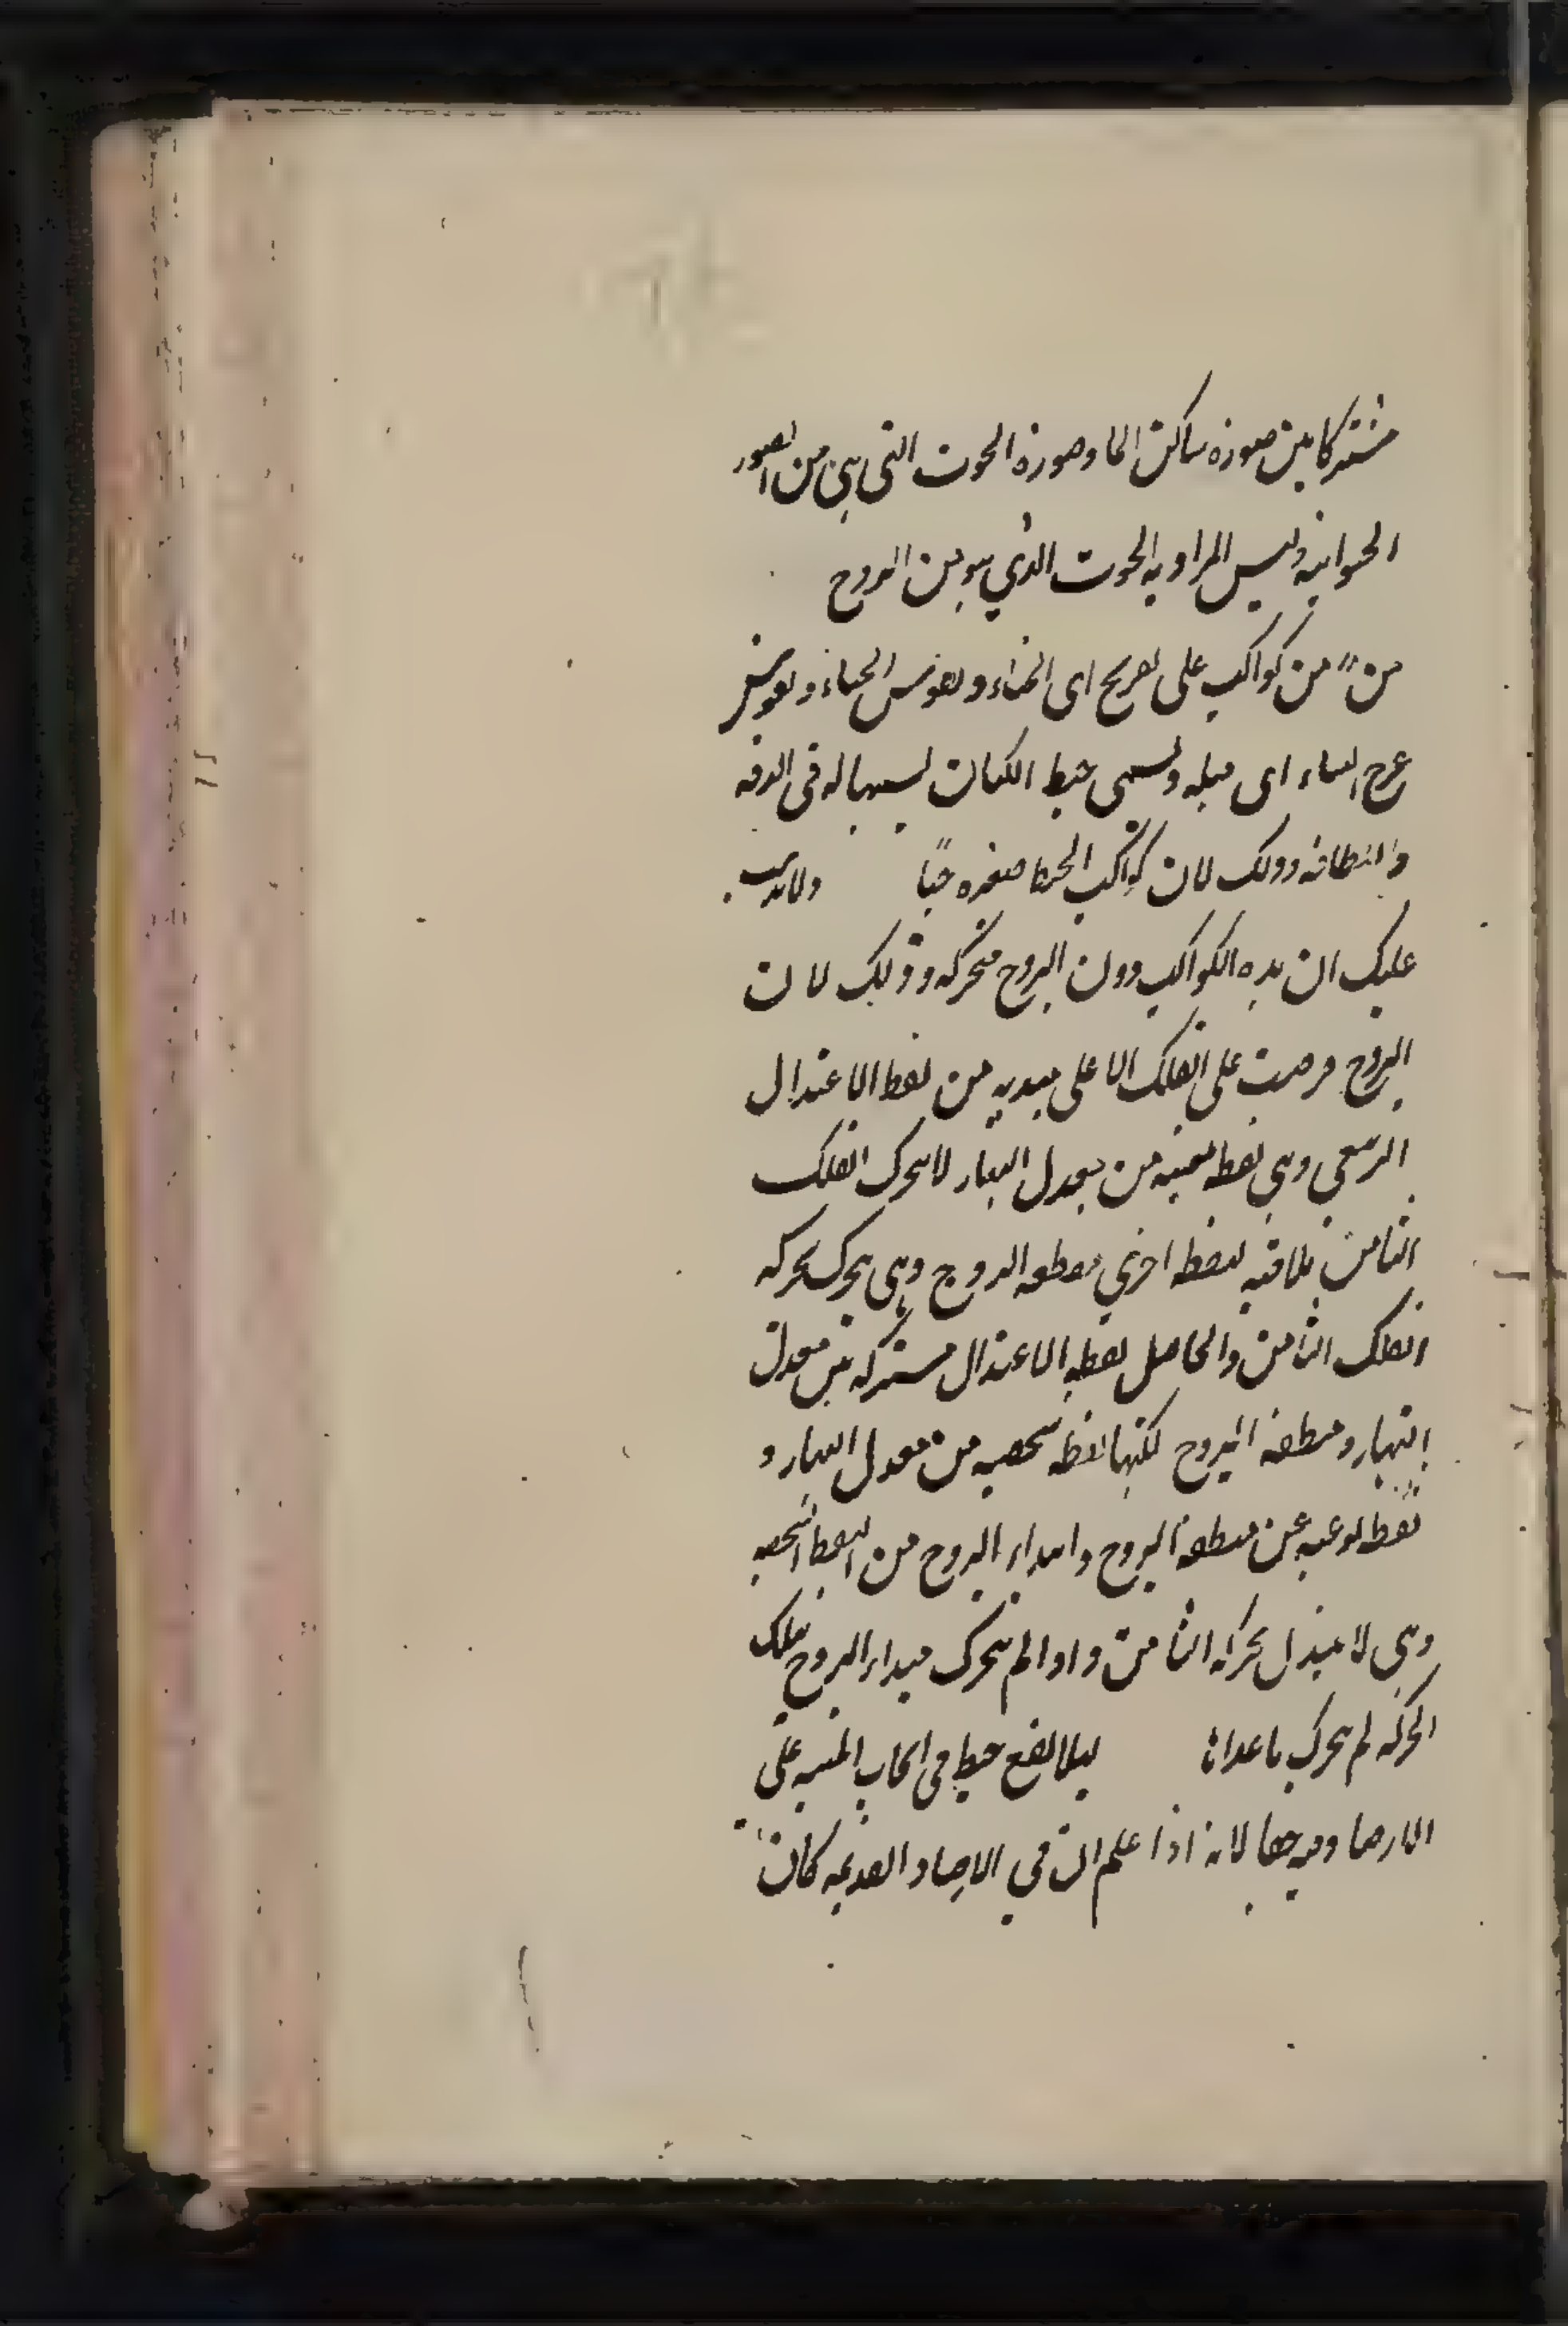 مشتركا بين صورة ساكن الما وصورة الحوت التى هى من الصور
الجنوبية وليس المراد به الحوت الذي هو من البروج
من كواكب على تعريج اى انحناء وتقوس انحناء وتعويض
عرج البناء اى ميله ويسمى خيط الكتان تشبيها له فى الدقه
وذلك لان كواكب الخيط صغيره جدًا ولا يذهب
عليك ان هذه الكواكب دون البروج متحركه وذلك لان
البروج فرضت على الفلك الاعلى مبتديه من نقطه الاعتدال
الربيعى وهى نقطه معينه من معدل النهار لا بتحرك الفلك
الثامن بملاقيه لنقطه اخرى منطقه البروج وهى بتحرك بحركه
الفلك الثامن والحاصل نقطه الاعتدال مشتركه بين معدل
النهار ومنطقه البروج لكنها نقطه شخصيه من معدل النهار و
نقطه نوعيه من منطقه البروج وابتداء البروج من النقطه الشخصيه
وهى لا يتبدل بحركه الثامن واذا لم يتحرك مبداء البروج بتلك
الحركه لم يتحرك ما عداها ليلا يقع خبط فى الحساب المبنى على
الارصاد لانه اذا علم ان في الارصاد القديمه كان